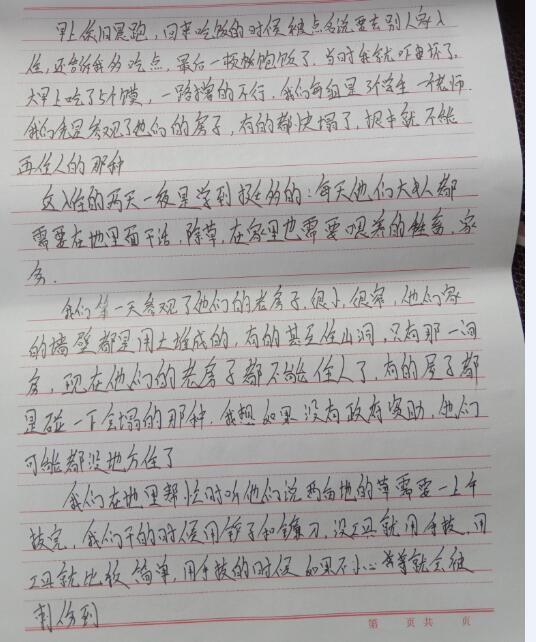 早上依旧晨跑，回来吃饭的时候被点名说要去别人家入
住，还告诉我多吃点，最后一顿饱饱饭了，当时我就吓坏了，
大早上吃了5个馍，一路撑的不行，我们每组是3个学生一个老师.
我们先是参观了他们的房子，有的都快塌了，根本就不能
再住人的那种
这入住的两天一夜是学到挺多的：每天他们大人都
需要在地里面干活，除草，在家里也需要喂养的牲畜，家
务.
我们第一天参观了他们的老房子，很小，很窄，他们家
的墙壁都是用土堆成的，有的甚至住山洞，只有那一间
房，现在他们的老房子都不能住人了，有的屋子都
是碰一下会塌的那种，我想如果没有政府资助，他们
可能都没地方住了
我们在地里帮忙时听他们说两亩地的草需要一上午
拔完，我们干的时候用铲子和镰刀，没工具就用手拔，用
工具就比较简单，用手拔的时候如果不小心常常就会被
刺伤到
第 页 共 页